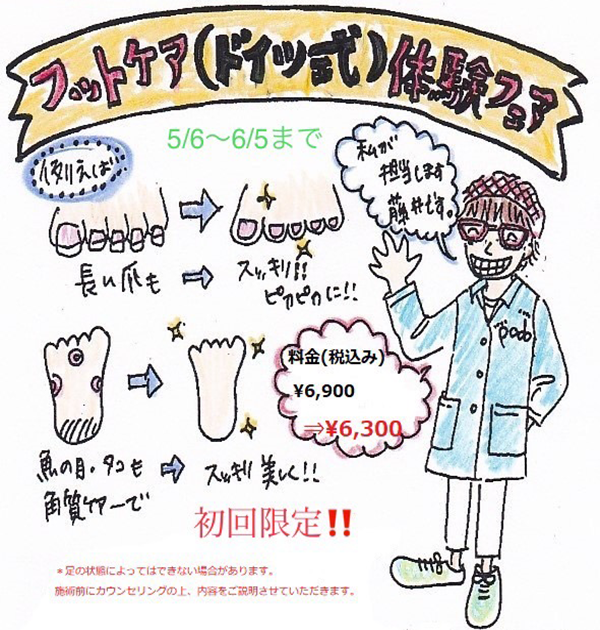 フットケア(ドイツ式)体験フェア
5/6～6/5まで
例えば
私が
担当します
藤井です。
長い爪も → スッキリ!!
ピカピカに!!
料金(税込み)
¥6,900
⇒¥6,300
魚の目・タコも → スッキリ美しく!!
角質ケアーで
初回限定!!
＊足の状態によってはできない場合があります。
施術前にカウンセリングの上、内容をご説明させていただきます。